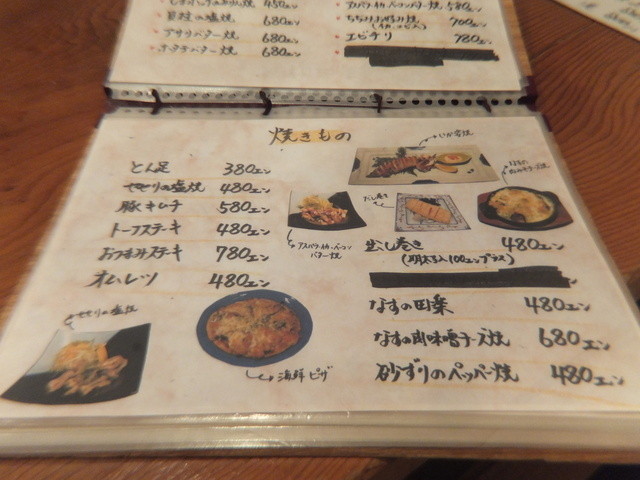 450エン
680エン
アサリバター焼 680エン
ホタテバター焼 680エン
580エン
700エン
エビチリ 780エン
焼きもの
とん足 380エン
せせりの塩焼 480エン
豚キムチ 580エン
トーフステーキ 480エン
おつまみステーキ 780エン
オムレツ 480エン
いか
だし巻き
アスパラ
バター焼
出し巻き 480エン
(明太子入100エンプラス)
なすの田楽 480エン
なすの肉味噌チーズ焼 680エン
砂ずりのペッパー焼 480エン
せせりの塩焼
海鮮ピザ